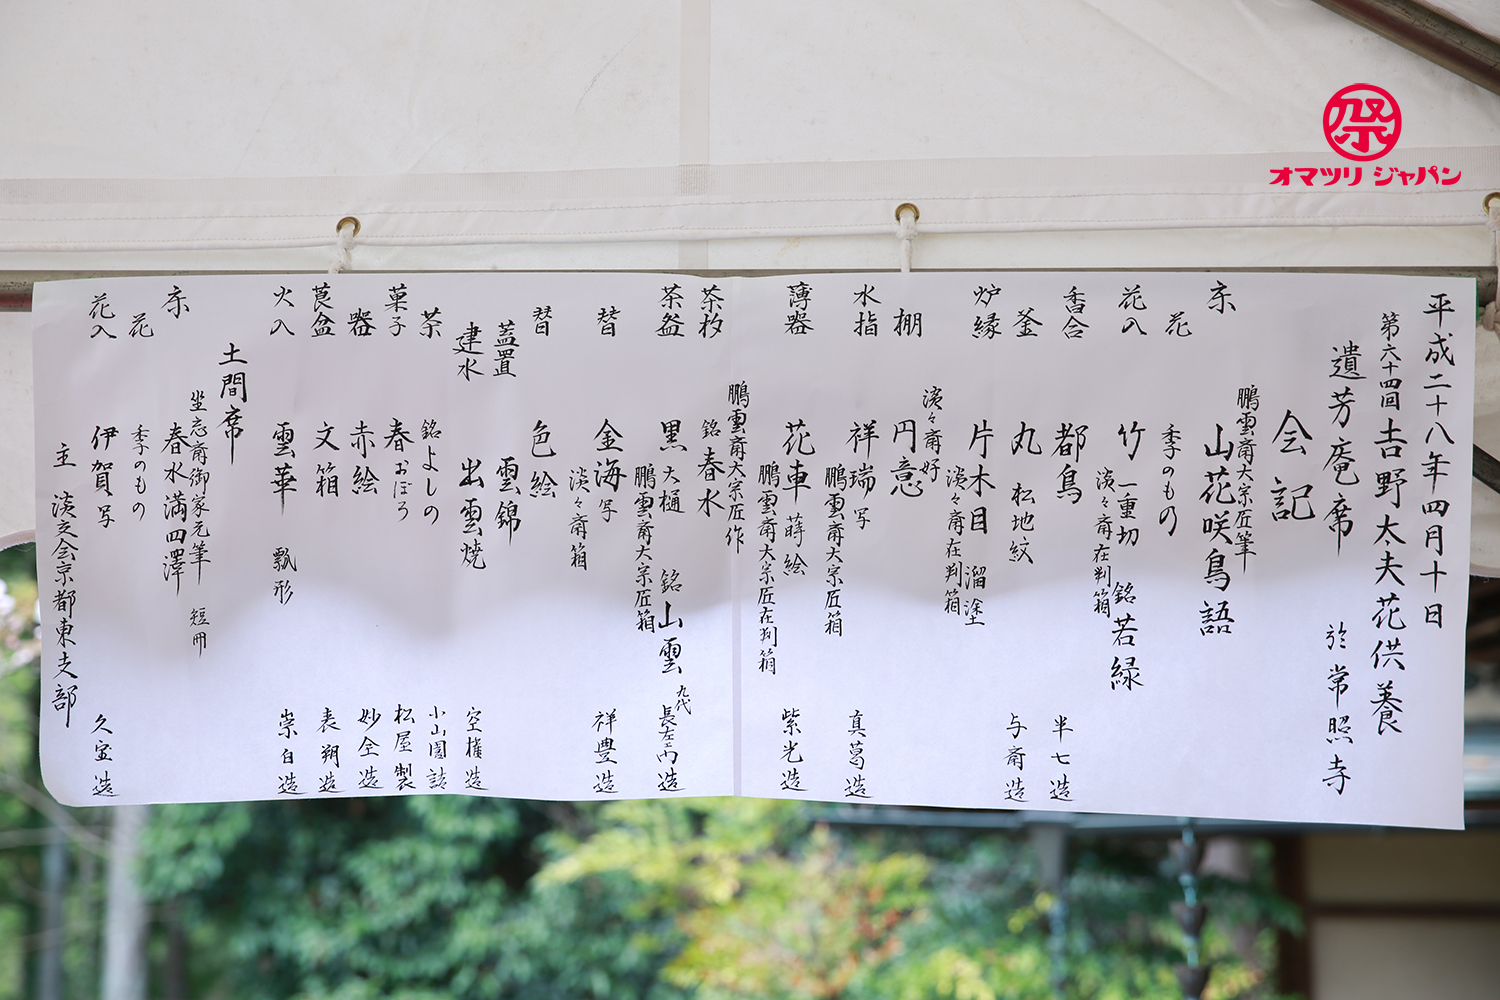 平成二十八年四月十日
第六十四回 吉野太夫花供養
遺芳庵席 於 常照寺
会記
鵬雲斎大宗匠筆
床 山花咲鳥語
花 季のもの
花入 竹 一重切 銘 若緑
淡々斎在判箱
香合 都鳥 半七造
釜 丸 松地紋 与斎造
炉縁 片木目 溜塗
淡々斎在判箱
淡々斎好
棚 円意
水指 祥瑞写 真葛造
鵬雲斎大宗匠箱
薄器 花車 蒔絵 紫光造
鵬雲斎大宗匠在判箱
鵬雲斎大宗匠作
茶杓 銘 春水
茶盌 黒 大樋 銘 山雲 九代 長左ヱ門造
鵬雲斎大宗匠箱
替 金海写 祥豊造
淡々斎箱
替 色絵
蓋置 雲錦
建水 出雲焼 空権造
茶 銘 よしの 小山園詰
菓子 春おぼろ 松屋製
器 赤絵 妙全造
莨盆 文箱 表朔造
火入 雲華 瓢形 崇白造
土間席
坐忘斎御家元筆 短冊
床 春水満四澤
花 季のもの
花入 伊賀写 久宝造
主 淡交会京都東支部
祭
オマツリジャパン